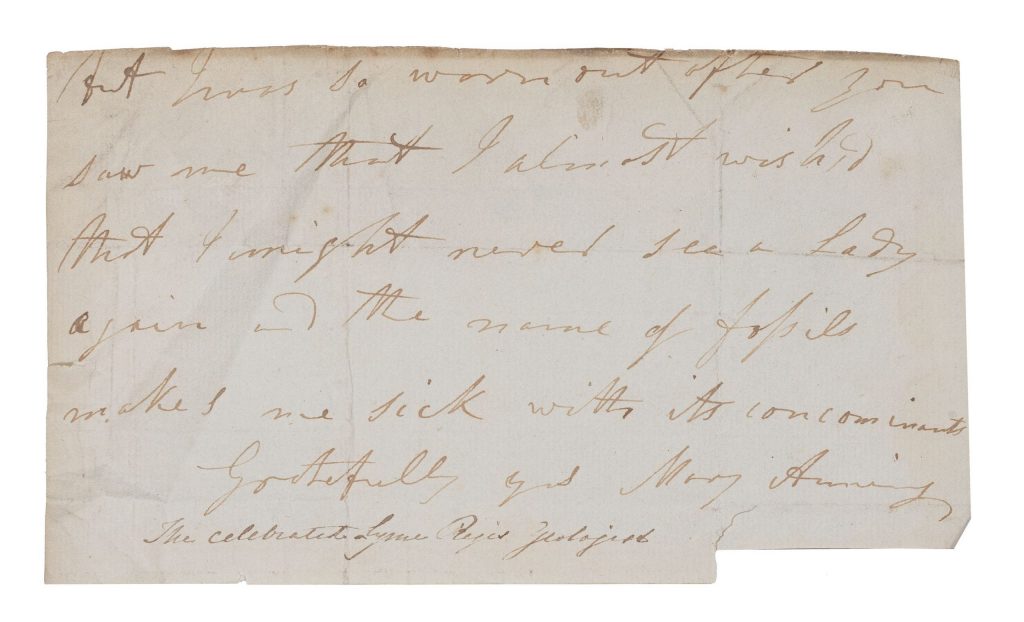 but I was so worn out after you
saw me that I almost wish'd
that I might never see a Lady
again and the name of fossils
makes me sick with its concominants
Gratefully yrs Mary Anning
The celebrated Lyme Regis Geologist